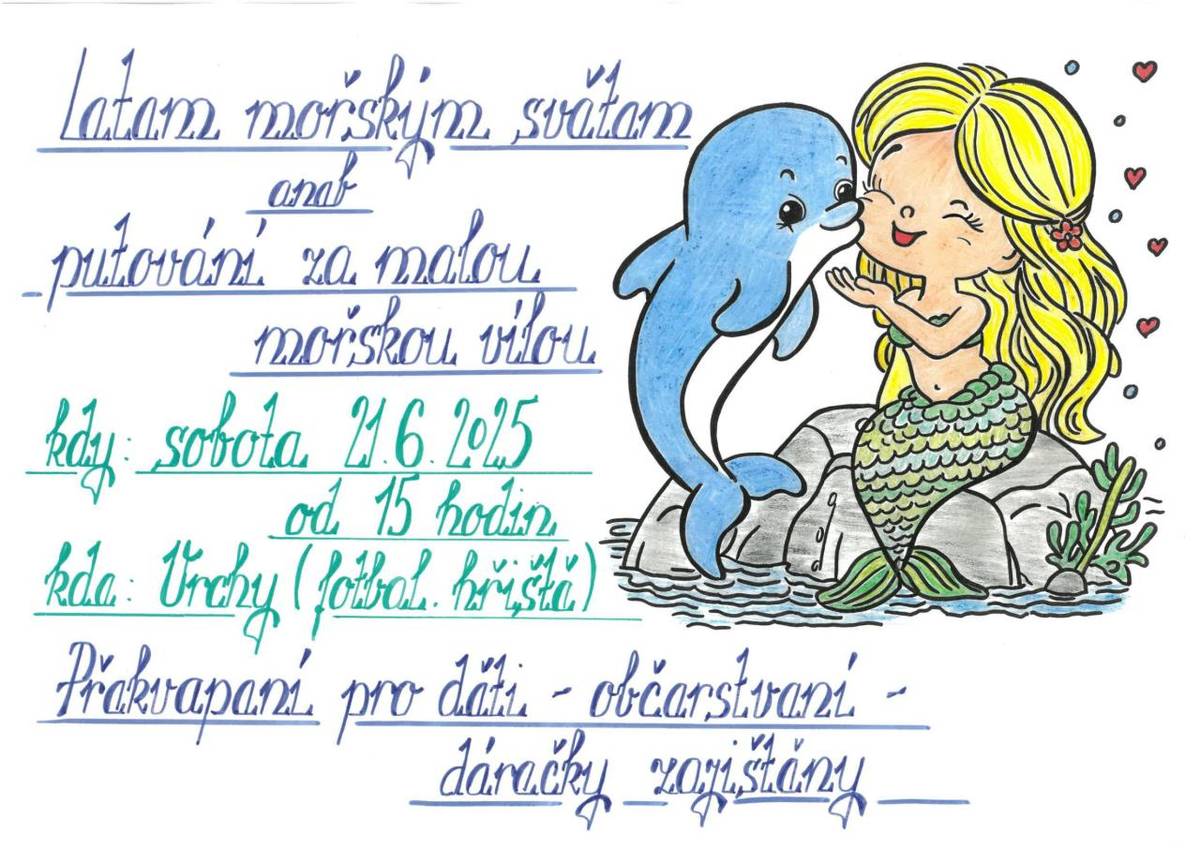 Letem mořským světem
aneb
putování za malou
mořskou vílou
kdy: sobota 21.6.2025
od 15 hodin
kde: Vrchy (fotbal. hřiště)
Překvapení pro děti - občerstvení -
dárečky zajištěny